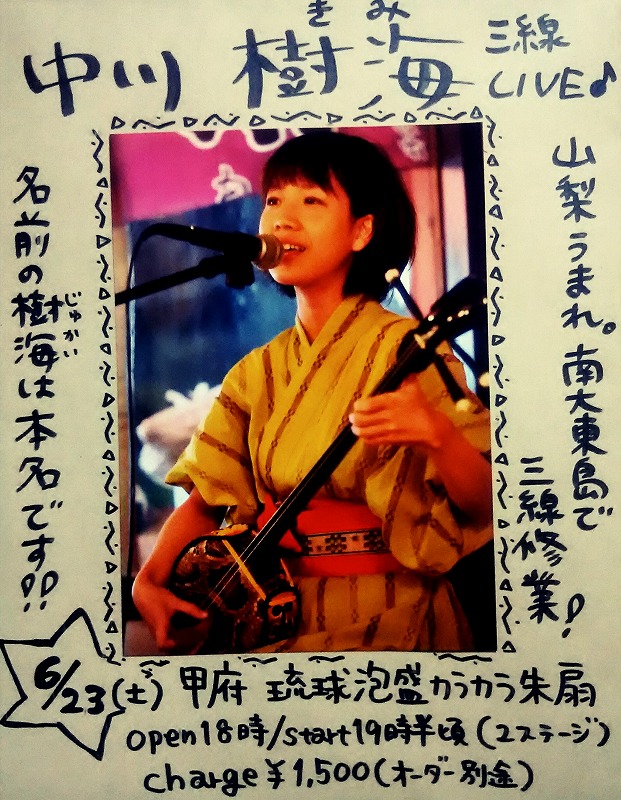 きみ
中川 樹海 三線
LIVE♪
山梨うまれ。南大東島で
三線修業!
じゅかい
名前の樹海は本名です!!
6/23(土) 甲府 琉球泡盛カラカラ朱扇
open18時/start19時半頃(2ステージ)
charge¥1,500(オーダー別途)